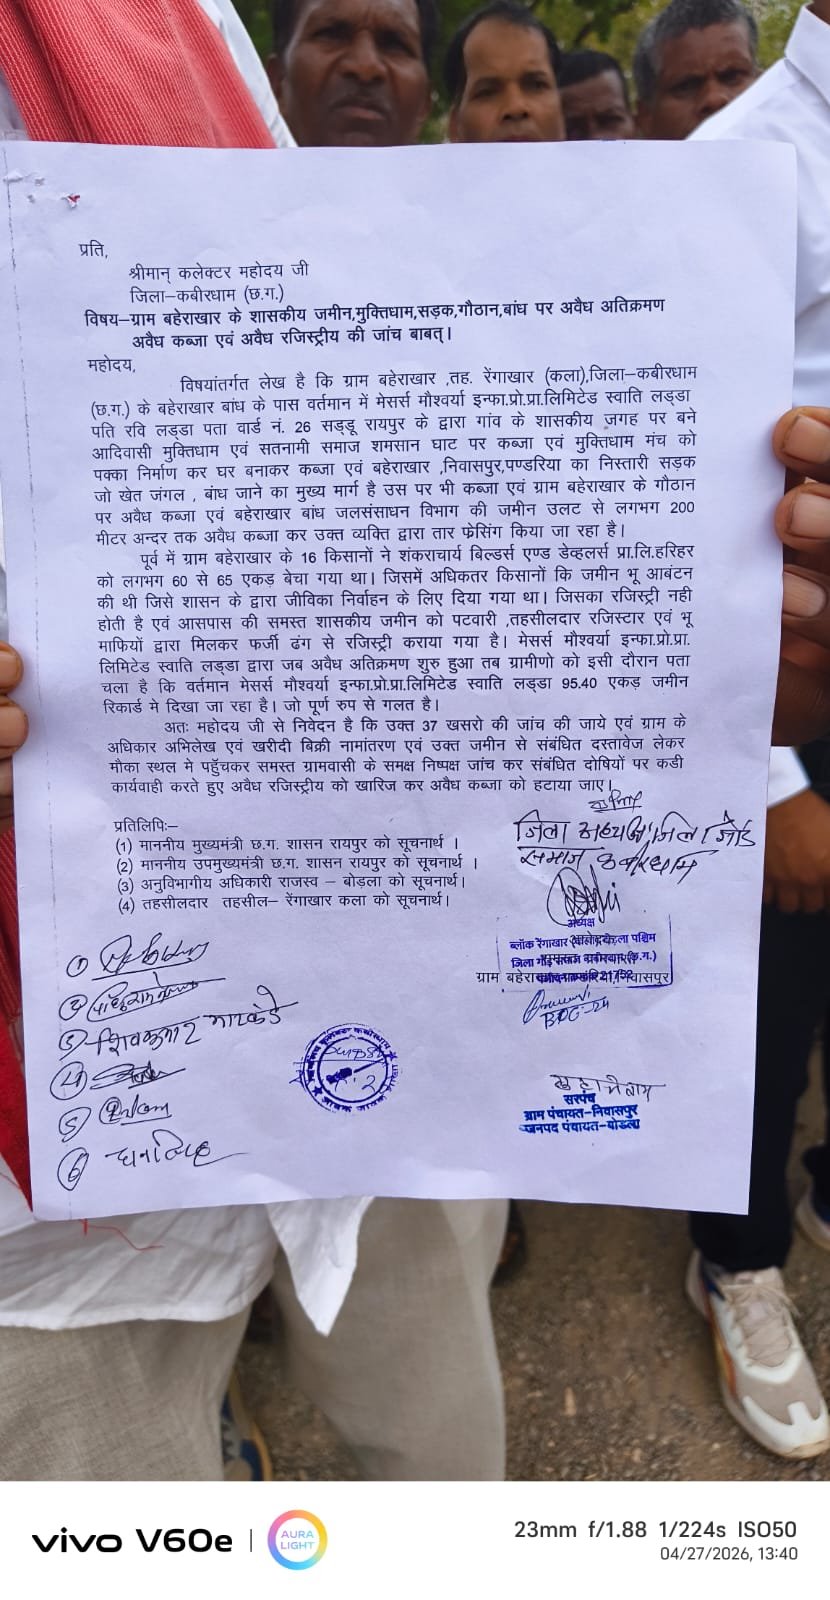 प्रति,
श्रीमान् कलेक्टर महोदय जी
जिला–कबीरधाम (छ.ग.)
विषय–ग्राम बहेराखार के शासकीय जमीन,मुक्तिधाम,सड़क,गौठान,बांध पर अवैध अतिक्रमण
अवैध कब्जा एवं अवैध रजिस्ट्रीय की जांच बाबत्।
महोदय,
विषयांतर्गत लेख है कि ग्राम बहेराखार ,तह. रेंगाखार (कला),जिला–कबीरधाम
(छ.ग.) के बहेराखार बांध के पास वर्तमान में मेसर्स मौश्वर्या इन्फा.प्रो.प्रा.लिमिटेड स्वाति लड्डा
पति रवि लड्डा पता वार्ड नं. 26 सड्डू रायपुर के द्वारा गांव के शासकीय जगह पर बने
आदिवासी मुक्तिधाम एवं सतनामी समाज शमसान घाट पर कब्जा एवं मुक्तिधाम मंच को
पक्का निर्माण कर घर बनाकर कब्जा एवं बहेराखार ,निवासपुर,पण्डरिया का निस्तारी सड़क
जो खेत जंगल , बांध जाने का मुख्य मार्ग है उस पर भी कब्जा एवं ग्राम बहेराखार के गौठान
पर अवैध कब्जा एवं बहेराखार बांध जलसंसाधन विभाग की जमीन उलट से लगभग 200
मीटर अन्दर तक अवैध कब्जा कर उक्त व्यक्ति द्वारा तार फेसिंग किया जा रहा है।
पूर्व में ग्राम बहेराखार के 16 किसानों ने शंकराचार्य बिल्डर्स एण्ड डेव्हलर्स प्रा.लि.हरिहर
को लगभग 60 से 65 एकड़ बेचा गया था। जिसमें अधिकतर किसानों कि जमीन भू आबंटन
की थी जिसे शासन के द्वारा जीविका निर्वाहन के लिए दिया गया था। जिसका रजिस्ट्री नही
होती है एवं आसपास की समस्त शासकीय जमीन को पटवारी ,तहसीलदार रजिस्टार एवं भू
माफियों द्वारा मिलकर फर्जी ढंग से रजिस्ट्री कराया गया है। मेसर्स मौश्वर्या इन्फा.प्रो.प्रा.
लिमिटेड स्वाति लड्डा द्वारा जब अवैध अतिक्रमण शुरु हुआ तब ग्रामीणो को इसी दौरान पता
चला है कि वर्तमान मेसर्स मौश्वर्या इन्फा.प्रो.प्रा.लिमिटेड स्वाति लड्डा 95.40 एकड़ जमीन
रिकार्ड मे दिखा जा रहा है। जो पूर्ण रुप से गलत है।
अतः महोदय जी से निवेदन है कि उक्त 37 खसरो की जांच की जाये एवं ग्राम के
अधिकार अभिलेख एवं खरीदी बिक्री नामांतरण एवं उक्त जमीन से संबंधित दस्तावेज लेकर
मौका स्थल मे पहुँचकर समस्त ग्रामवासी के समक्ष निष्पक्ष जांच कर संबंधित दोषियों पर कडी
कार्यवाही करते हुए अवैध रजिस्ट्रीय को खारिज कर अवैध कब्जा को हटाया जाए।
प्रतिलिपिः–
(1) माननीय मुख्यमंत्री छ.ग. शासन रायपुर को सूचनार्थ ।
(2) माननीय उपमुख्यमंत्री छ.ग. शासन रायपुर को सूचनार्थ ।
(3) अनुविभागीय अधिकारी राजस्व – बोड़ला को सूचनार्थ।
(4) तहसीलदार तहसील– रेंगाखार कला को सूचनार्थ।
जिला अध्यक्ष जिला गोंड
समाज कबीरधाम
अध्यक्ष
ब्लॉक रेंगाखार
पश्चिम
जिला गोंड़ समाज
(छ.ग.)
ग्राम
निवासपुर
①
②
③ शिवकुमार मारकंडे
④
⑤
⑥ धनसिंह
सरपंच
ग्राम पंचायत–निवासपुर
जनपद पंचायत–बोडला
vivo V60e
AURA LIGHT
23mm f/1.88 1/224s ISO50
04/27/2026, 13:40